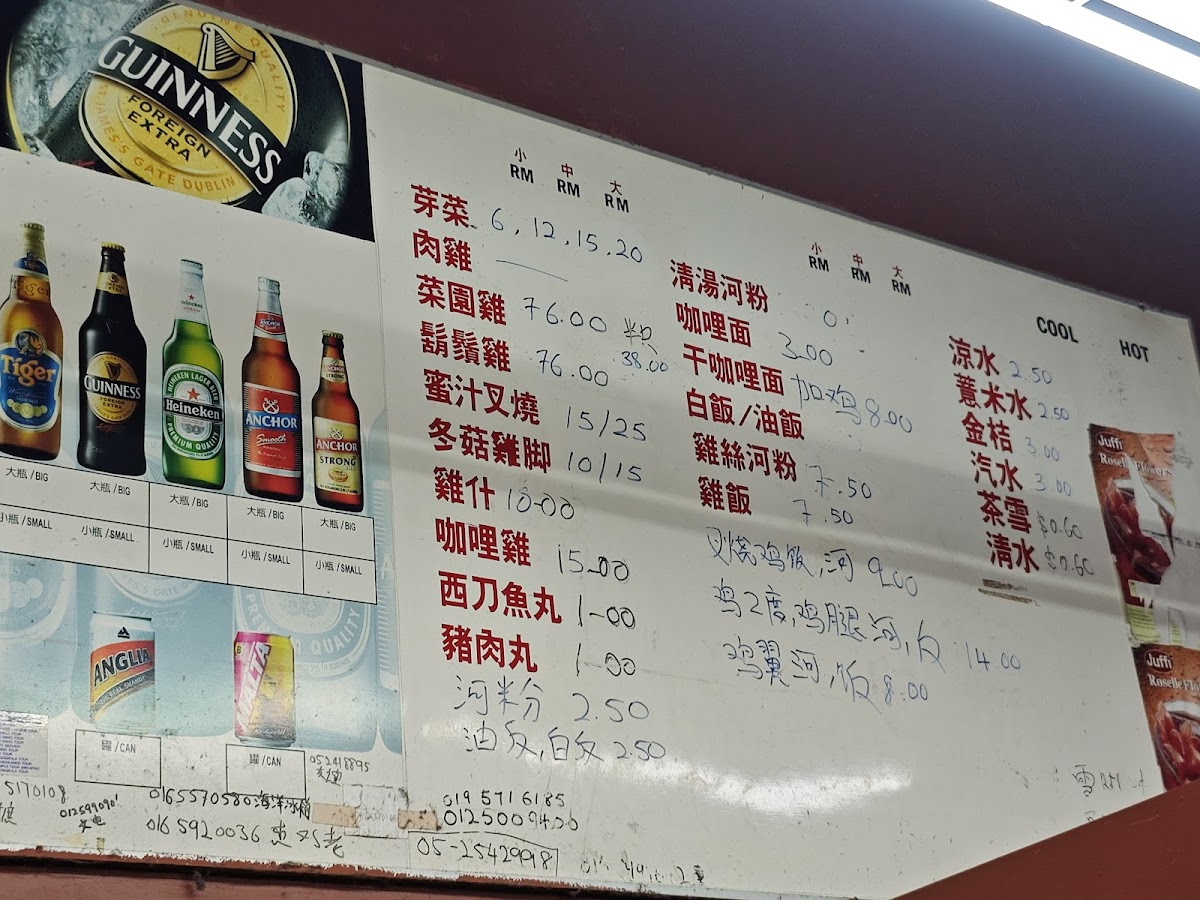 GENUINE QUALITY
GUINNESS
FOREIGN
EXTRA
ST. JAMES'S GATE DUBLIN
Tiger
GUINNESS
Heineken
HEINEKEN LAGER BEER
PREMIUM QUALITY
ANCHOR
Smooth
ANCHOR
STRONG
大瓶/BIG
大瓶/BIG
大瓶/BIG
大瓶/BIG
大瓶/BIG
小瓶/SMALL
小瓶/SMALL
小瓶/SMALL
小瓶/SMALL
小瓶/SMALL
ANGLIA
MALTA
罐/CAN
罐/CAN
小 中 大
RM RM RM
芽菜 6,12,15,20
肉雞
菜園雞 76.00 半只 38.00
鬍鬚雞 76.00
蜜汁叉燒 15/25
冬菇雞脚 10/15
雞什 10-00
咖哩雞 15-00
西刀魚丸 1-00
豬肉丸 1-00
河粉 2.50
油反,白反 2.50
小 中 大
RM RM RM
清湯河粉
咖哩面 3.00
干咖哩面 加鸡 8.00
白飯/油飯
雞絲河粉 7.50
雞飯 7.50
叉烧鸡饭,河 9.00
鸡2度,鸡腿河,反 14.00
鸡翼河,饭 8.00
COOL HOT
涼水 2.50
薏米水 2.50
金桔 3.00
汽水 3.00
茶雪 $0.60
清水 $0.60
Juffi
Roselle Flowers
Juffi
052418895
5170108
0165570580
0165920036
019 5716185
05-2542998